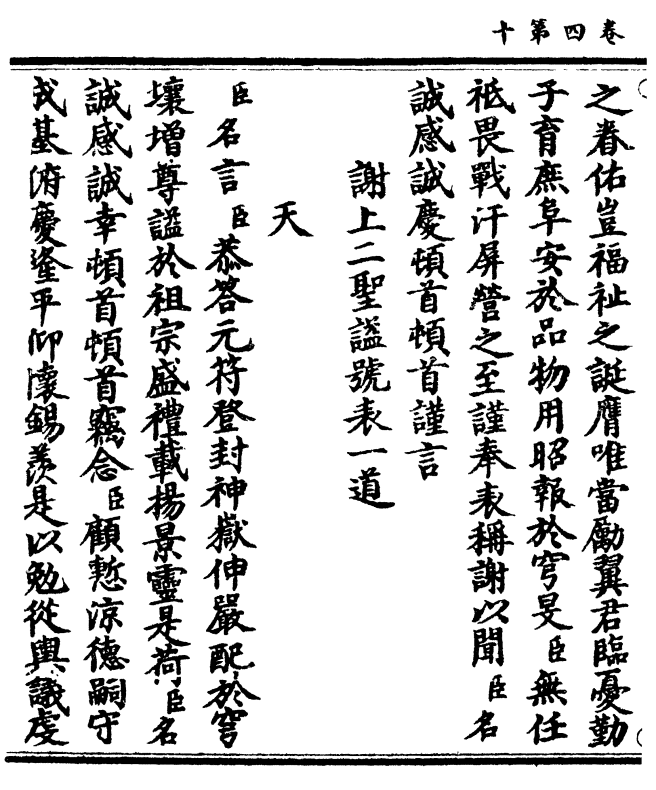 卷四第十
之眷佑豈福祉之誕膺唯當勵翼君臨憂勤
子育庶阜安於品物用昭報於穹旻臣無任
祗畏戰汗屏營之至謹奉表稱謝以聞臣名
誠感誠慶頓首頓首謹言
謝上二聖謚號表一道
天
臣名言臣恭荅元符登封神嶽伸嚴配於穹
壤增尊謚於祖宗盛禮載揚景靈是荷臣名
誠感誠幸頓首頓首竊念臣顧慙涼德嗣守
丕基俯慶逢平仰懷錫羨是以勉從輿議虔